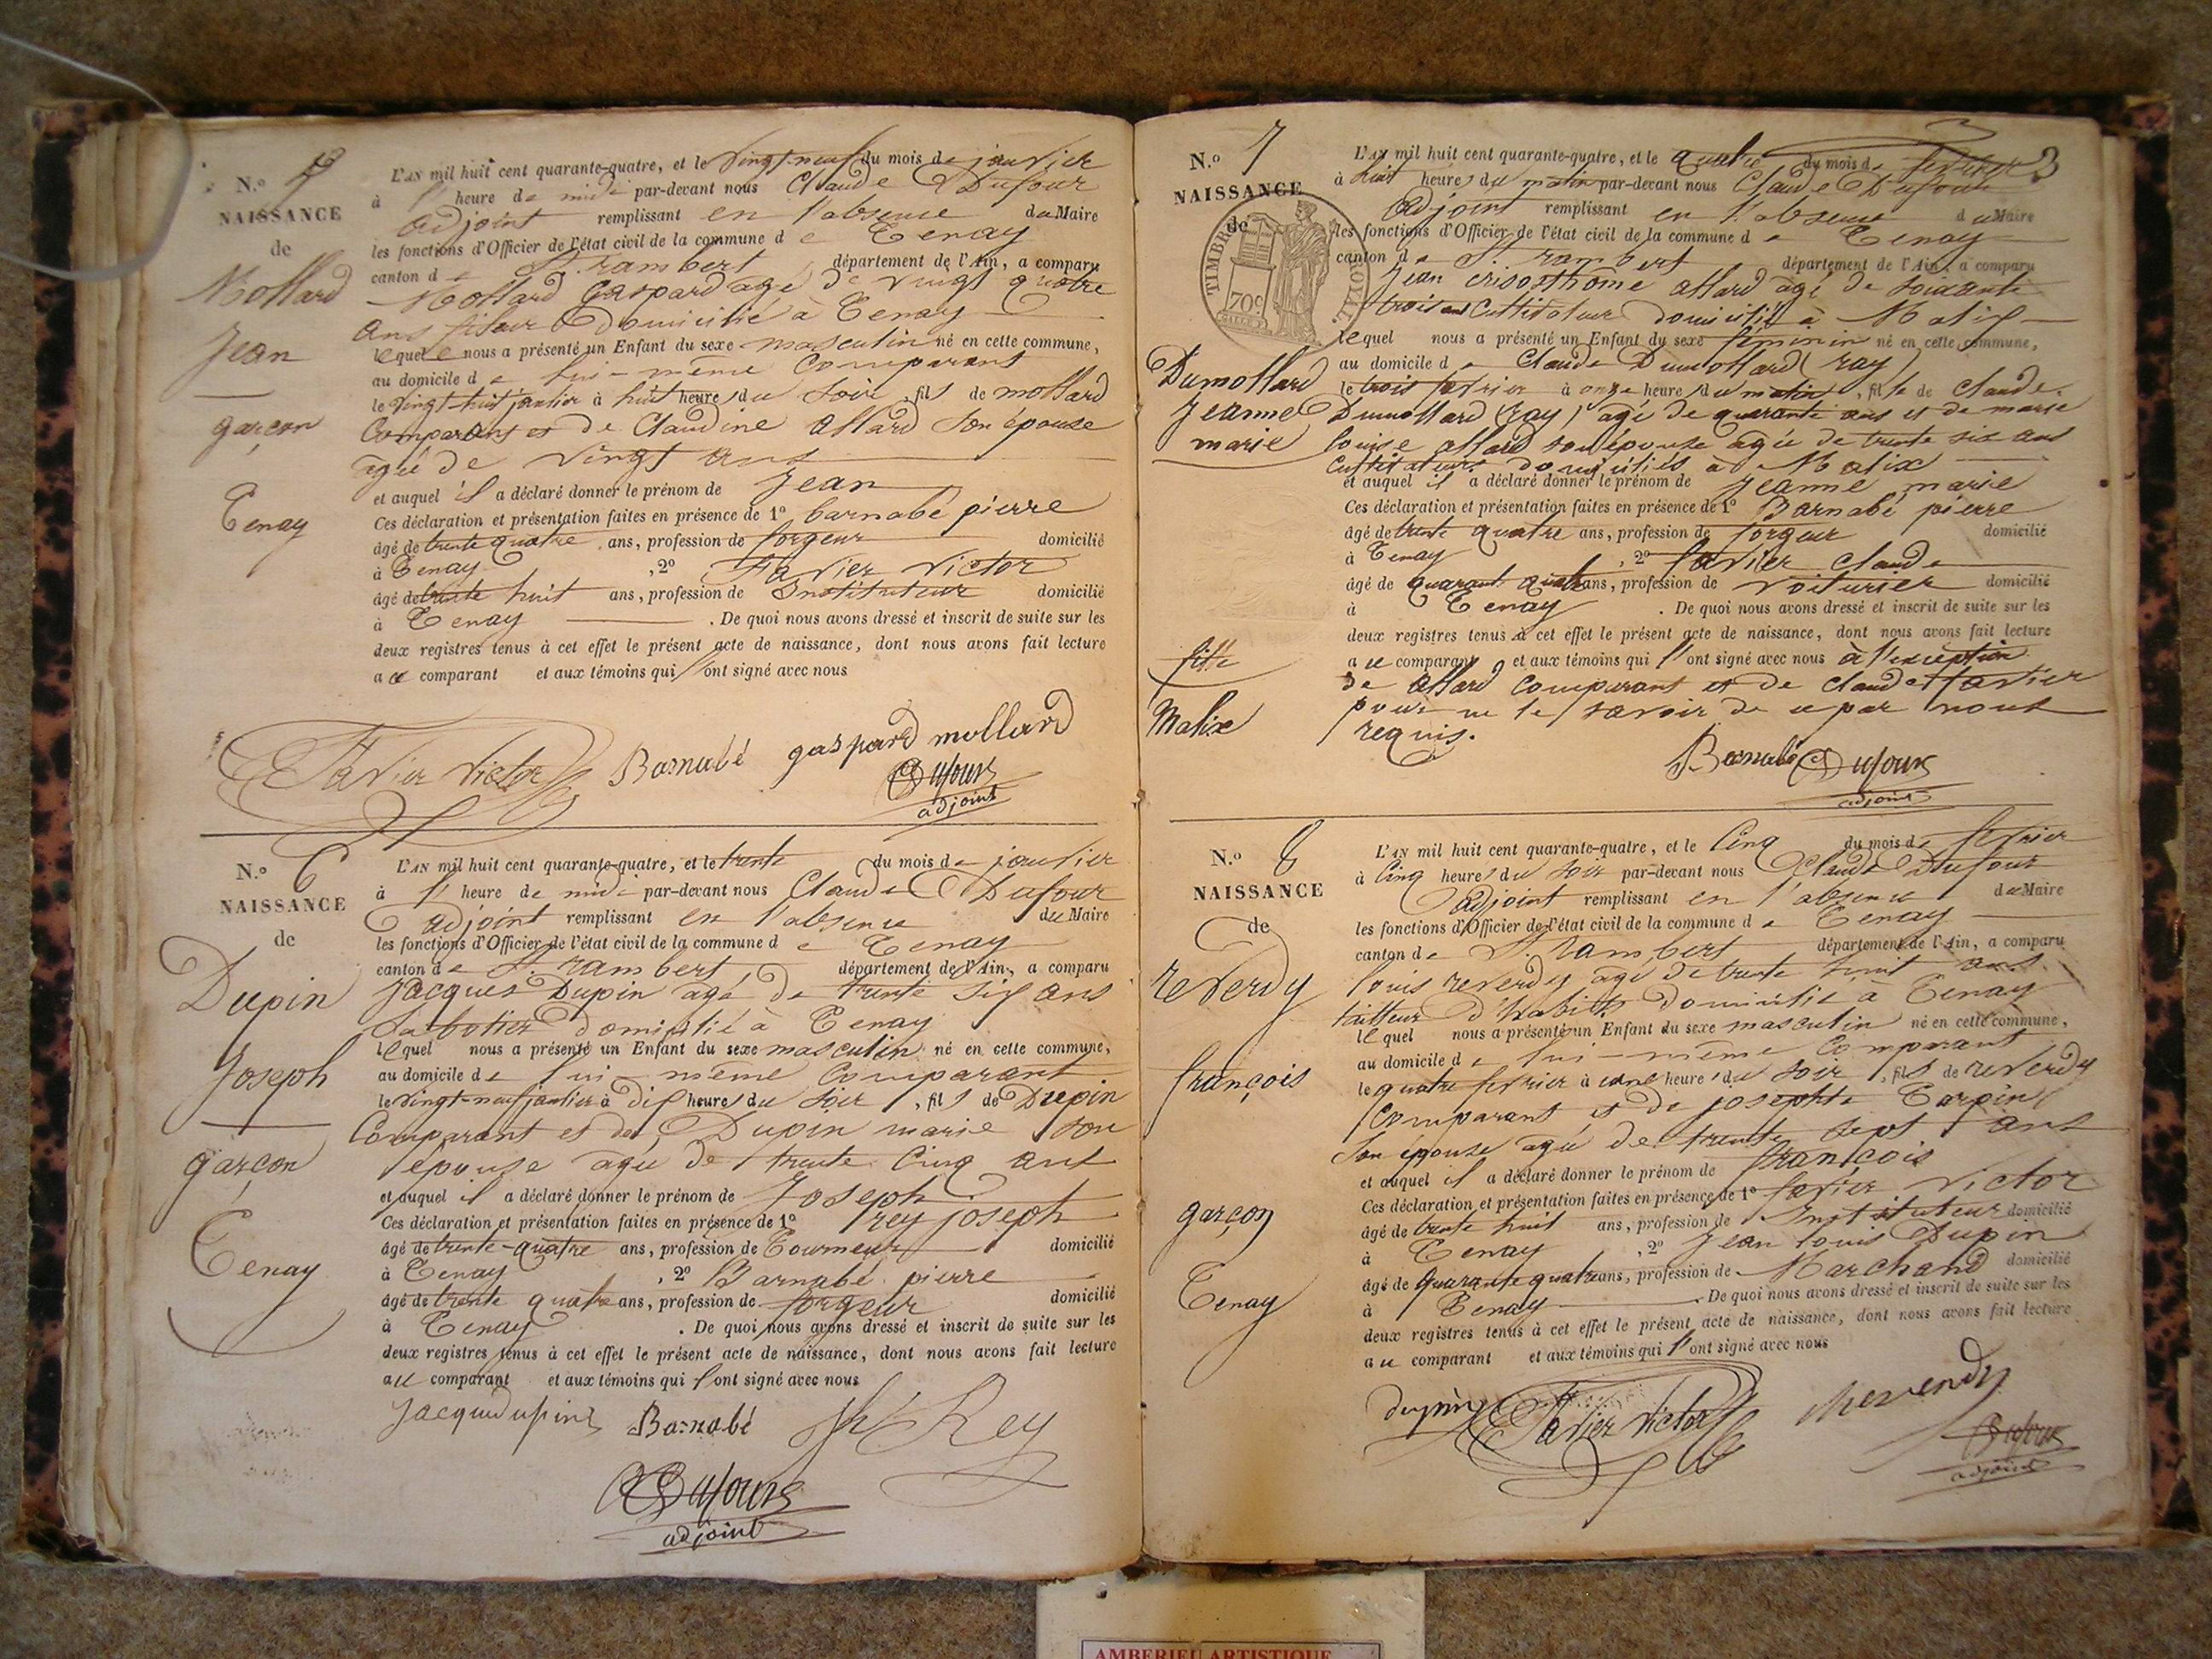 N.º
NAISSANCE
de
Mollard
Jean
garçon
Tenay
L'AN mil huit cent quarante-quatre, et le Vingt-neuf du mois de janvier
à l' heure de midi par-devant nous Claude Dufour
adjoint remplissant en l'absence du Maire
les fonctions d'Officier de l'état civil de la commune de Tenay
canton de St. rambert département de l'Ain, a comparu
Mollard Gaspard agé de vingt quatre
ans fileur Domicilié à Tenay
lequel nous a présenté un Enfant du sexe masculin né en cette commune,
au domicile de lui-même Comparant
le Vingt-huit janvier à huit heures du Soir, fils de mollard
Comparant et de Claudine Allard Son épouse
agée de vingt ans
et auquel il a déclaré donner le prénom de Jean
Ces déclaration et présentation faites en présence de 1º barnabé pierre
âgé de trente quatre ans, profession de forgeur domicilié
à Tenay, 2º Favier Victor
âgé de trente huit ans, profession de Instituteur domicilié
à Tenay. De quoi nous avons dressé et inscrit de suite sur les
deux registres tenus à cet effet le présent acte de naissance, dont nous avons fait lecture
au comparant et aux témoins qui l'ont signé avec nous
Favier Victor Barnabé gaspard mollard
Dufour
adjoint
N.º 6
NAISSANCE
de
Dupin
Joseph
garçon
Tenay
L'AN mil huit cent quarante-quatre, et le trente du mois de janvier
à l' heure de midi par-devant nous Claude Dufour
adjoint remplissant en l'absence du Maire
les fonctions d'Officier de l'état civil de la commune de Tenay
canton de St. rambert département de l'Ain, a comparu
Jacques Dupin agé de trente six ans
Sabotier domicilié à Tenay
lequel nous a présenté un Enfant du sexe masculin né en cette commune,
au domicile de lui-même Comparant
le Vingt-neuf janvier à dix heures du Soir, fils de Dupin
Comparant et de Dupin marie Son
épouse agée de trente Cinq ans
et auquel il a déclaré donner le prénom de Joseph
Ces déclaration et présentation faites en présence de 1º rey joseph
âgé de trente-quatre ans, profession de Tourneur domicilié
à Tenay, 2º Barnabé pierre
âgé de trente quatre ans, profession de forgeur domicilié
à Tenay. De quoi nous avons dressé et inscrit de suite sur les
deux registres tenus à cet effet le présent acte de naissance, dont nous avons fait lecture
au comparant et aux témoins qui l'ont signé avec nous
Jacque dupin Barnabé Jh Rey
Dufour
adjoint
3
N.º 7
NAISSANCE
de
TIMBRE ROYAL
70c
Dumollard
Jeanne
marie
fille
Malix
L'AN mil huit cent quarante-quatre, et le quatre du mois de février
à huit heures du matin par-devant nous Claude Dufour
adjoint remplissant en l'absence du Maire
les fonctions d'Officier de l'état civil de la commune de Tenay
canton de St. rambert département de l'Ain, a comparu
Jean crisosthôme allard agé de soixante
trois ans Cultivateur domicilié à Malix
lequel nous a présenté un Enfant du sexe féminin né en cette commune,
au domicile de Claude Dumollard (ray)
le trois février à onze heures du matin, fille de Claude
Dumollard (ray) agé de quarante ans et de marie
louise allard son épouse agée de trente six ans
Cultivateurs domiciliés à Malix
et auquel il a déclaré donner le prénom de Jeanne marie
Ces déclaration et présentation faites en présence de 1º Barnabé pierre
âgé de trente quatre ans, profession de forgeur domicilié
à Tenay, 2º favier Claude
âgé de quarante quatre ans, profession de voiturier domicilié
à Tenay. De quoi nous avons dressé et inscrit de suite sur les
deux registres tenus à cet effet le présent acte de naissance, dont nous avons fait lecture
au comparant et aux témoins qui l'ont signé avec nous à l'exception
de allard Comparant et de Claude favier
pour ne le savoir de ce par nous
requis.
Barnabé Dufour
adjoint
N.º 8
NAISSANCE
de
reverdy
françois
garçon
Tenay
L'AN mil huit cent quarante-quatre, et le Cinq du mois de février
à Cinq heures du soir par-devant nous Claude Dufour
adjoint remplissant en l'absence du Maire
les fonctions d'Officier de l'état civil de la commune de Tenay
canton de St. rambert département de l'Ain, a comparu
louis reverdy agé de trente huit ans
tailleur d'habits domicilié à Tenay
lequel nous a présenté un Enfant du sexe masculin né en cette commune,
au domicile de lui-même Comparant
le quatre février à une heure du soir, fils de reverdy
Comparant et de josephte Carpin
Son épouse agée de trente sept ans
et auquel il a déclaré donner le prénom de françois
Ces déclaration et présentation faites en présence de 1º favier victor
âgé de trente huit ans, profession de Instituteur domicilié
à Tenay, 2º Jean louis Dupin
âgé de quarante quatre ans, profession de Marchand domicilié
à Tenay. De quoi nous avons dressé et inscrit de suite sur les
deux registres tenus à cet effet le présent acte de naissance, dont nous avons fait lecture
au comparant et aux témoins qui l'ont signé avec nous
dupin Favier Victor
Dufour
adjoint
AMBERIEU ARTISTIQUE